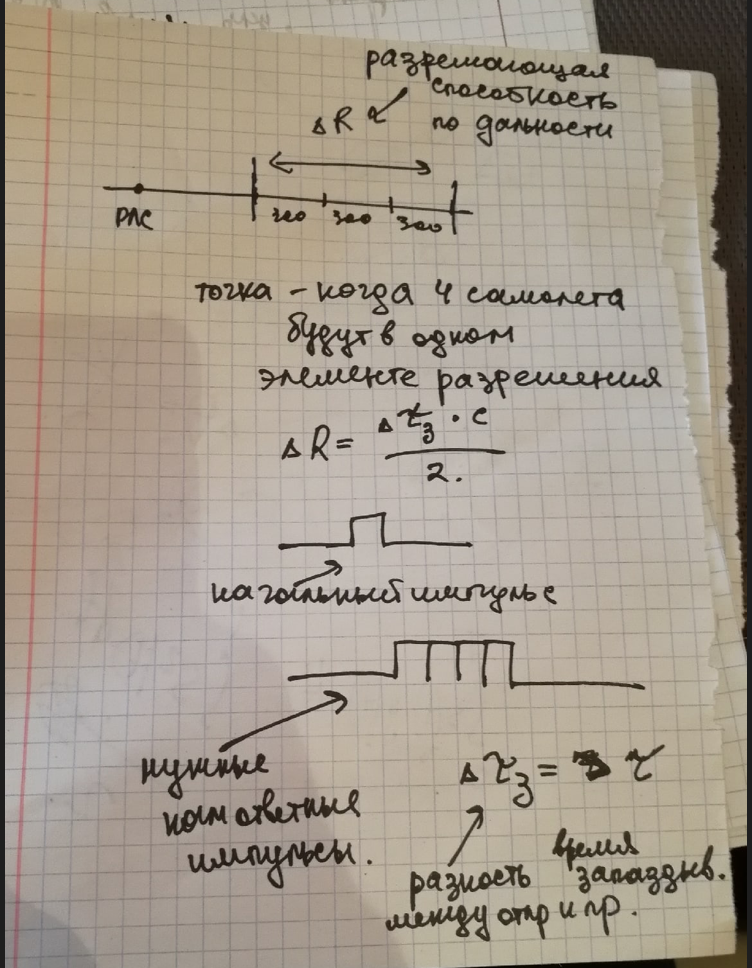 разрешающая
способность
ΔR по дальности
РЛС 300 300 300
точка - когда 4 самолета
будут в одном
элементе разрешения
ΔR = Δτз · c / 2.
начальный импульс
нужные
нам ответные
импульсы.
Δτз = τ
разность время запаздыв.
между отпр и пр.